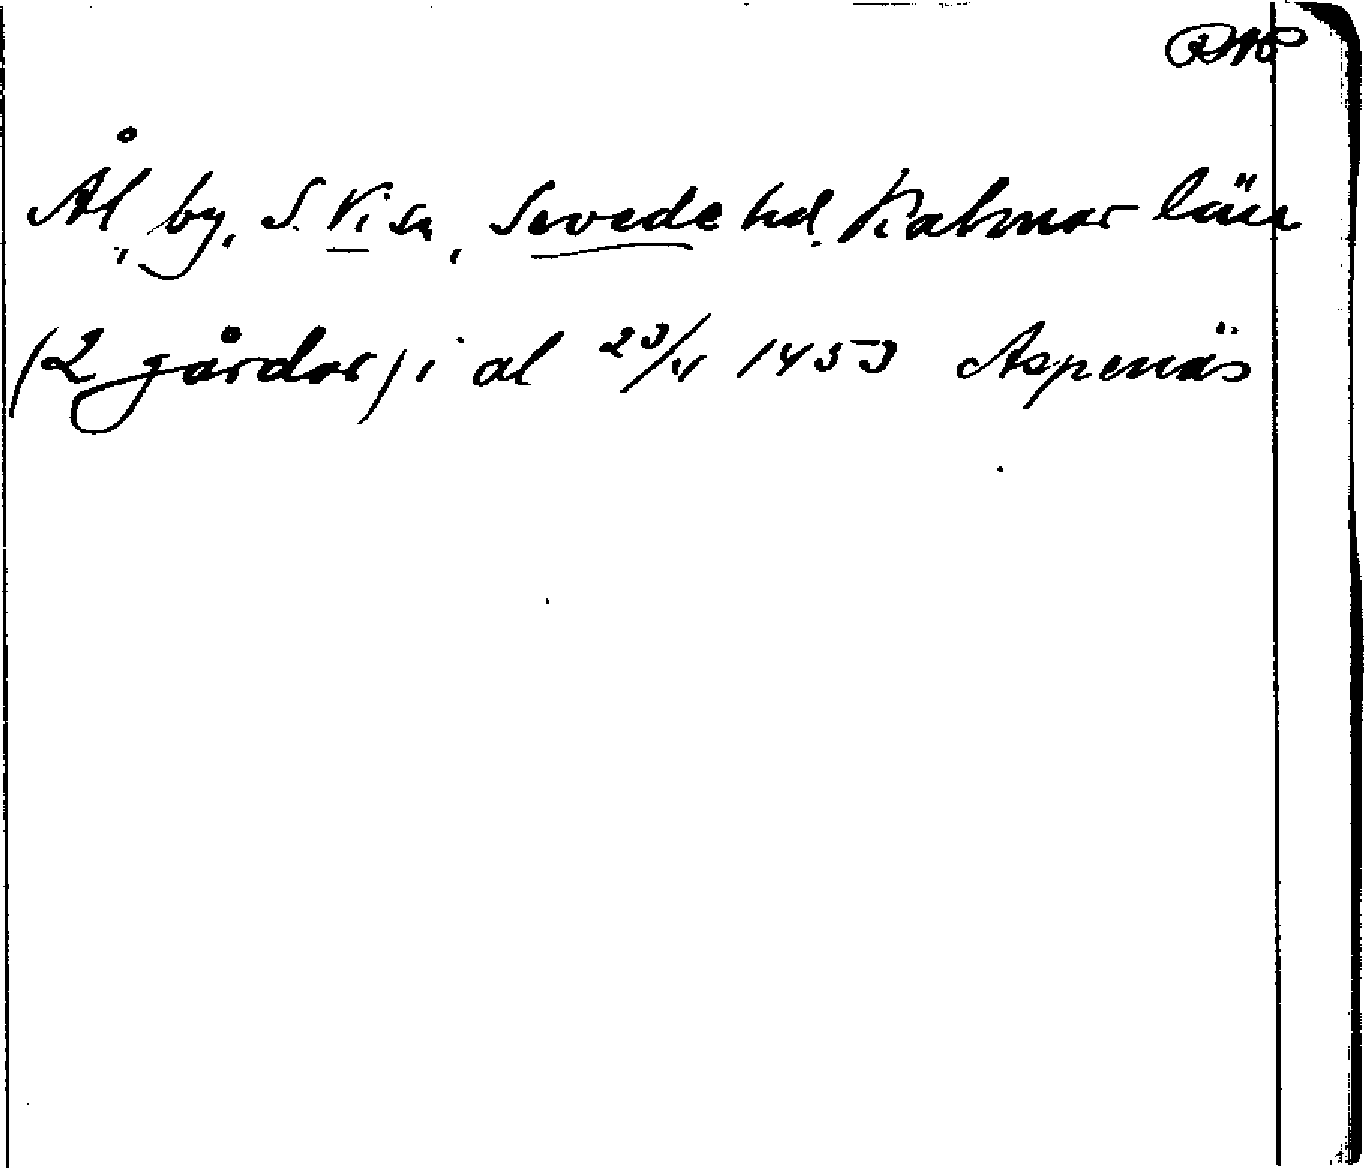 Ål, by, S. Vi sn, Sevede hd. Kalmar län
(2 gårdar) i al 23/11 1453 Aspenäs